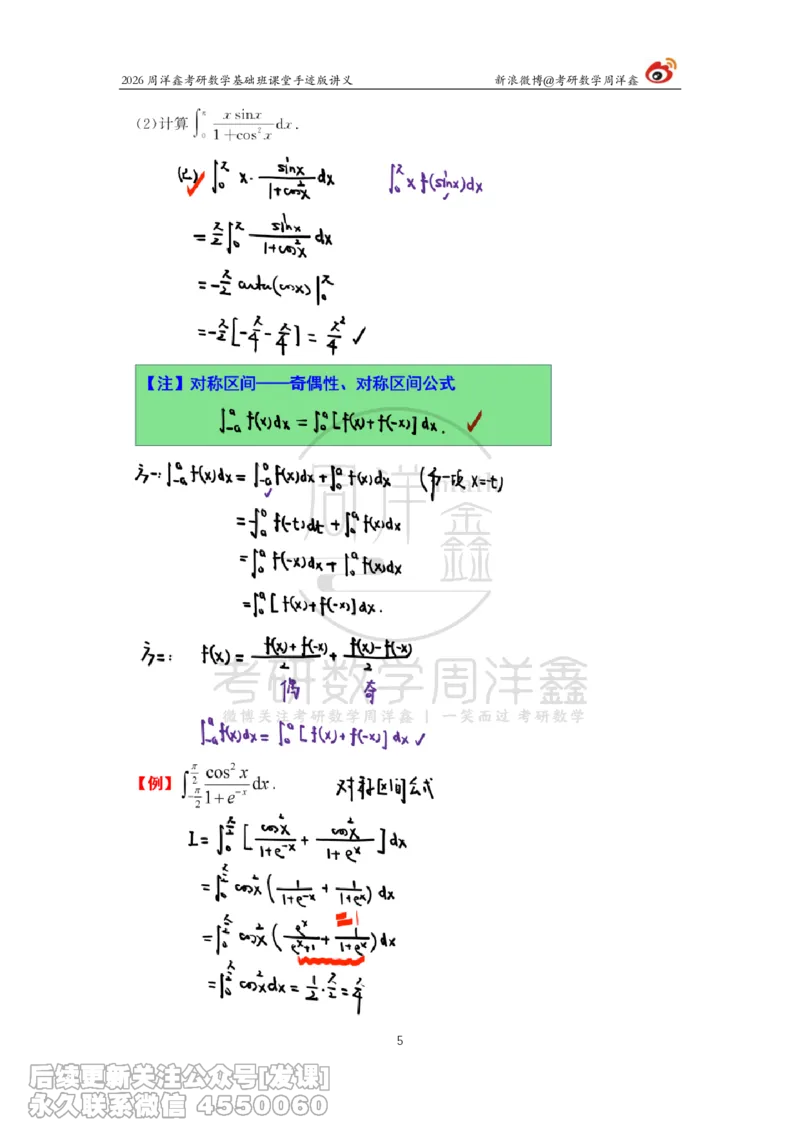 2026 周洋鑫考研数学基础班课堂手迹版讲义 新浪微博@考研数学周洋鑫
(2)计算∫₀^π x sinx/(1+cos²x) dx.
(2) ∫₀^π x· sinx/(1+cos²x) dx ∫₀^π x f(sinx)dx
= π/2 ∫₀^π sinx/(1+cos²x) dx
= -π/2 arctan(cosx)|₀^π
= -π/2 [-π/4 - π/4] = π²/4 ✓
【注】对称区间——奇偶性、对称区间公式
∫₋ₐ^a f(x)dx = ∫₀^a [f(x)+f(-x)] dx. ✓
方一: ∫₋ₐ^a f(x)dx = ∫₋ₐ^0 f(x)dx + ∫₀^a f(x)dx (前一项 x=-t)
= -∫ₐ^0 f(-t)dt + ∫₀^a f(x)dx
= ∫₀^a f(-x)dx + ∫₀^a f(x)dx
= ∫₀^a [f(x)+f(-x)]dx.
方二: f(x) = (f(x)+f(-x))/2 + (f(x)-f(-x))/2
偶 奇
∫₋ₐ^a f(x)dx = ∫₀^a [f(x)+f(-x)] dx ✓
【例】∫_{-π/2}^{π/2} cos²x/(1+e^{-x}) dx. 对称区间公式
I = ∫₀^{π/2} [cos²x/(1+e^{-x}) + cos²x/(1+e^x)] dx
= ∫₀^{π/2} cos²x (1/(1+e^{-x}) + 1/(1+e^x)) dx
= ∫₀^{π/2} cos²x (e^x/(e^x+1) + 1/(1+e^x)) dx =1
= ∫₀^{π/2} cos²x dx = 1/2 · π/2 = π/4
周洋鑫
考研数学周洋鑫
微博关注考研数学周洋鑫 | 一笑而过 考研数学
5
后续更新关注公众号[发课]
永久联系微信 4550060